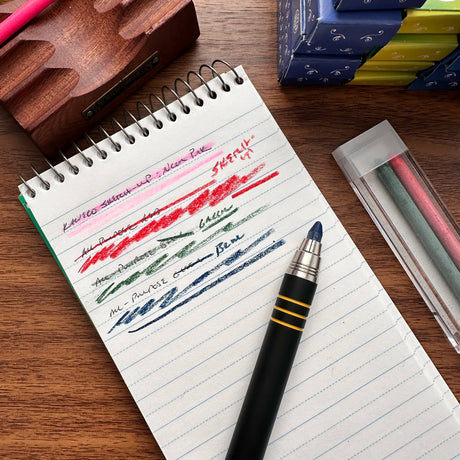 KAWECO SKETCH UP: NEON PINK
SKETCH
UP
ALL PURPOSE RED
ALL PURPOSE GREEN
ALL-PURPOSE BLUE